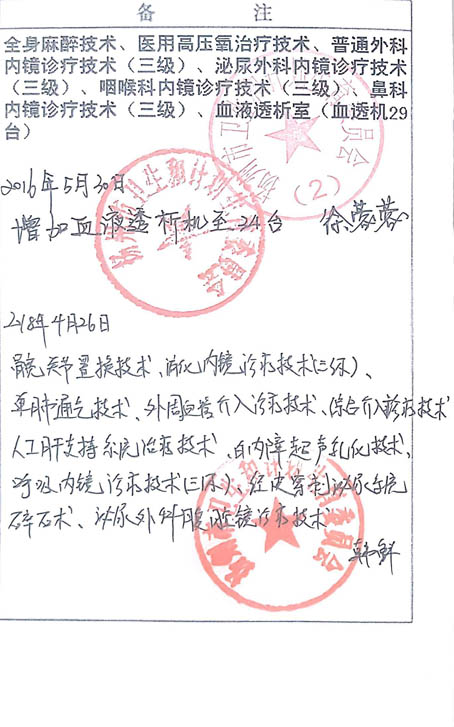 备 注
全身麻醉技术、医用高压氧治疗技术、普通外科
内镜诊疗技术（三级）、泌尿外科内镜诊疗技术
（三级）、咽喉科内镜诊疗技术（三级）、鼻科
内镜诊疗技术（三级）、血液透析室（血透机29
台）
（2）
2016年5月30日
增加血液透析机至34台 徐蓉蓉
218年4月26日
髋关节置换技术、消化内镜诊疗技术(三级)、
单肺通气技术、外周血管介入诊疗技术、综合介入诊疗技术
人工肝支持系统治疗技术、白内障超声乳化技术、
呼吸内镜诊疗技术(三级)、经皮肾镜泌尿系统
碎石术、泌尿外科腹腔镜诊疗技术
韩鲜